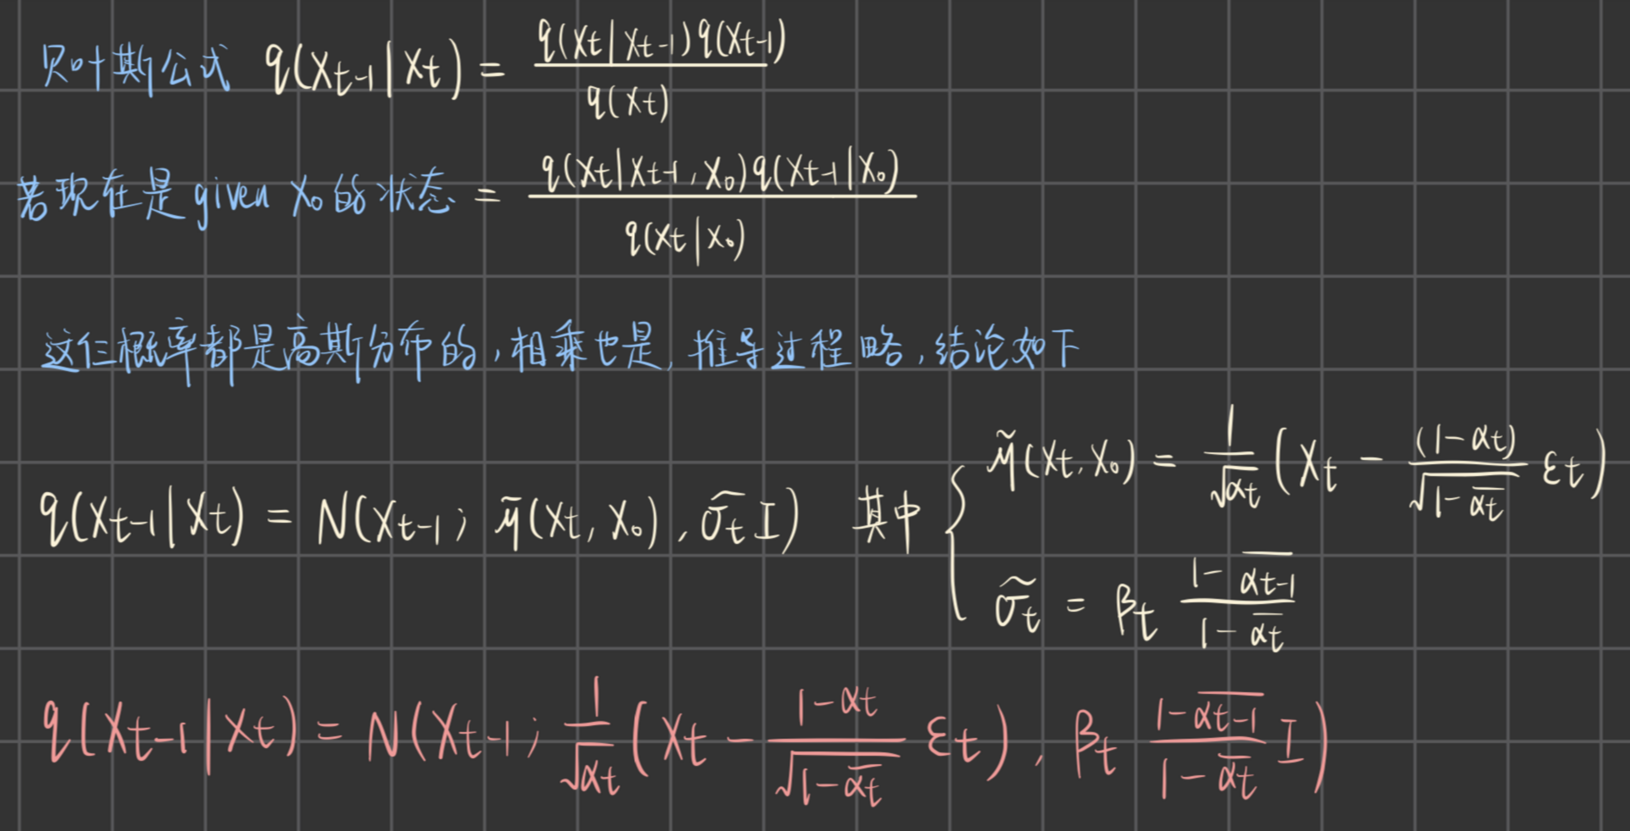 贝叶斯公式 q(Xt-1|Xt) = q(Xt|Xt-1)q(Xt-1) / q(Xt)
若现在是given X₀的状态 = q(Xt|Xt-1, X₀)q(Xt-1|X₀) / q(Xt|X₀)
这仨概率都是高斯分布的,相乘也是,推导过程略,结论如下
q(Xt-1|Xt) = N(Xt-1; μ̃(Xt, X₀), σ̃t I) 其中 { μ̃(Xt, X₀) = 1/√αt (Xt - (1-αt)/√(1-ᾱt) εt)
σ̃t = βt (1-ᾱt-1)/(1-ᾱt)
q(Xt-1|Xt) = N(Xt-1; 1/√αt (Xt - (1-αt)/√(1-ᾱt) εt), βt (1-ᾱt-1)/(1-ᾱt) I)